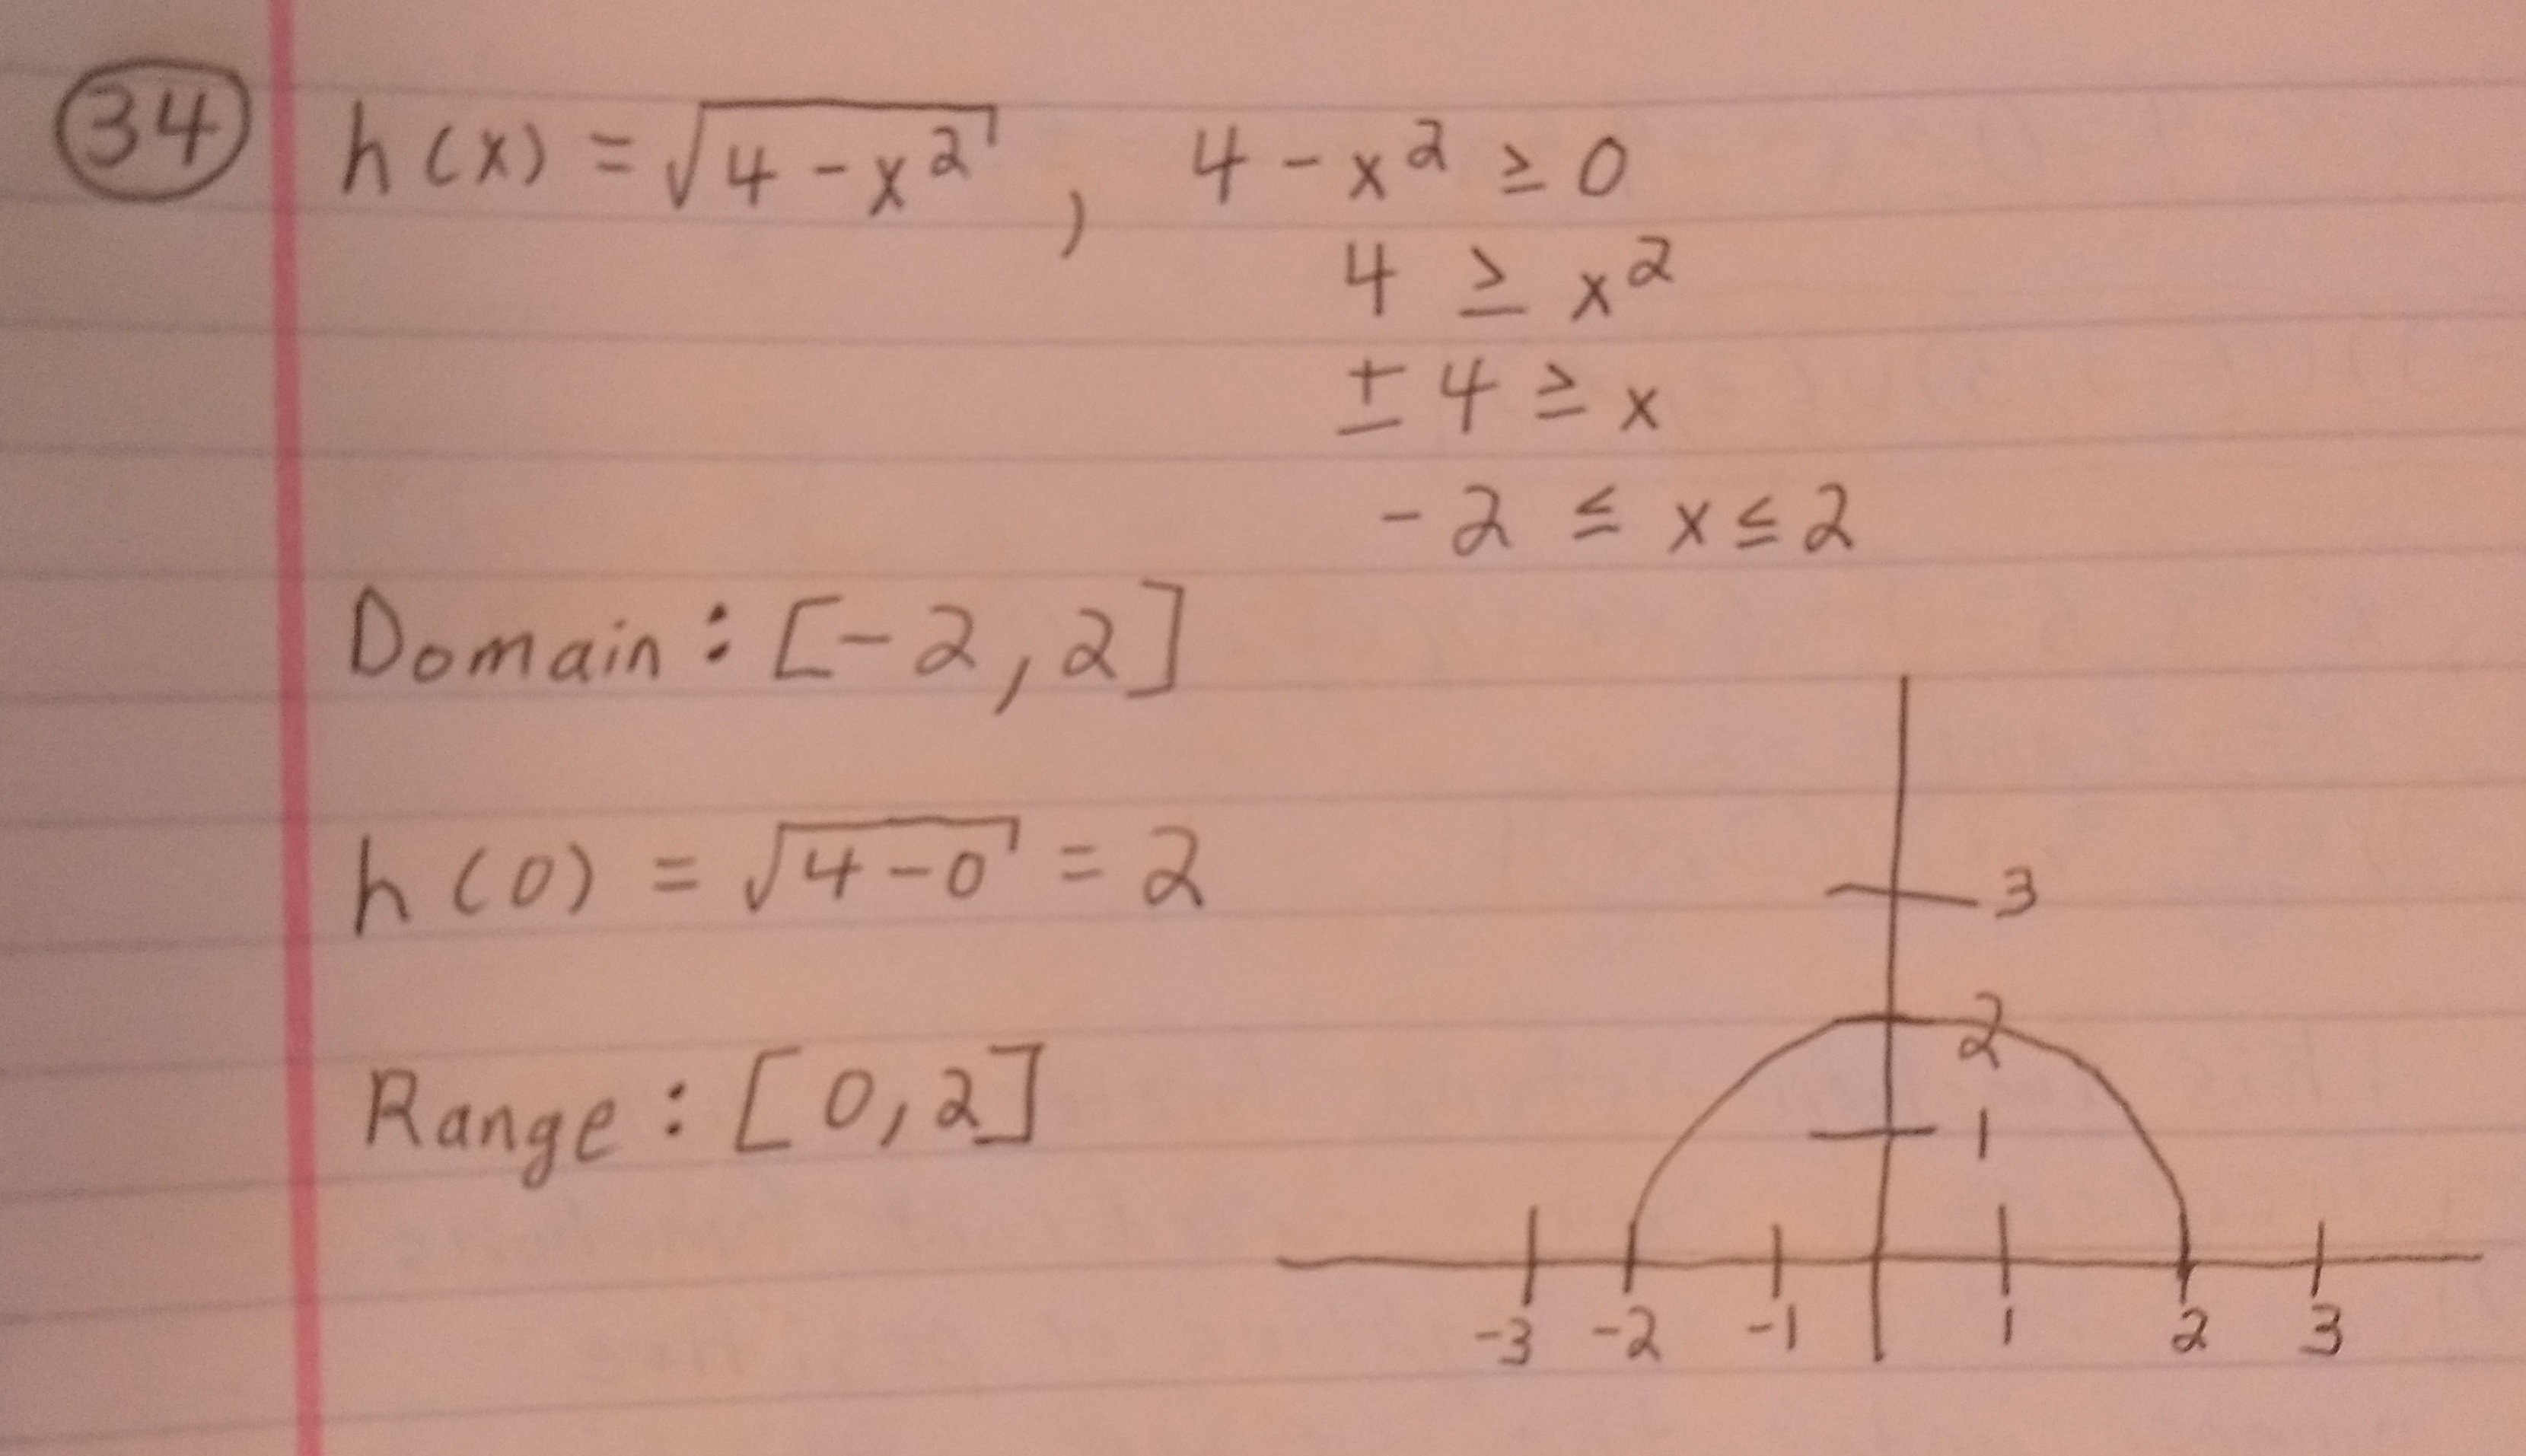 34 h(x) = √4 - x², 4 - x² ≥ 0
4 ≥ x²
± 4 ≥ x
- 2 ≤ x ≤ 2
Domain : [-2, 2]
h(0) = √4 - 0 = 2
Range : [0, 2]
3
2
1
-3 -2 -1 1 2 3